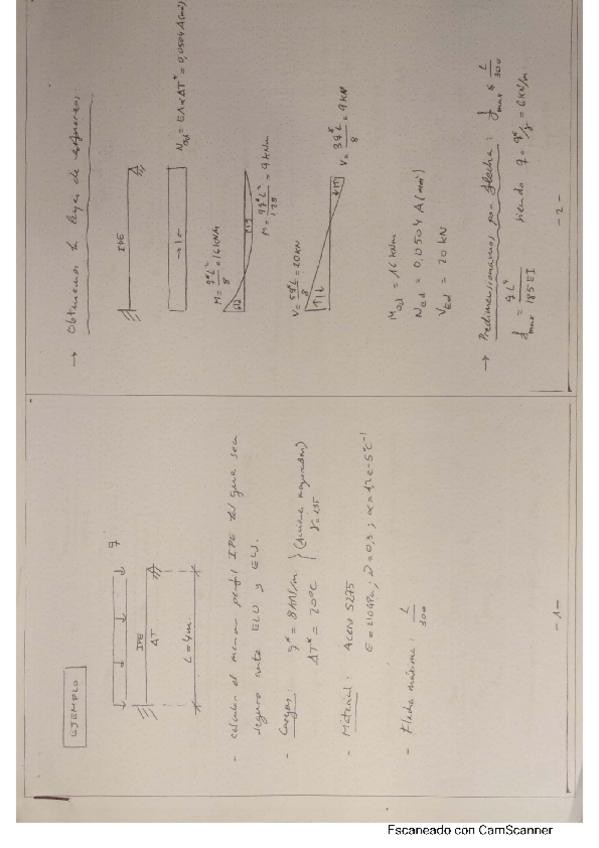 EJEMPLO
q
IPE
ΔT
L = 4m
- Calcular el menor perfil IPE tal que sea
seguro ante ELU y ELS.
- Cargas: q* = 8 kN/m } (
ΔT* = 20°C
- Material: Acero S275
E = 210 GPa; ν = 0,3; α = 1,2e-5 °C⁻¹
- Flecha máxima: L/300
- 1 -
→ Obtenemos la leyes de esfuerzos:
IPE
N_ed = EAαΔT* = 0,0504 A(mm²)
M = q*L²/8 = 16 kNm
M = 9q*L²/128 = 9 kNm
V = 5q*L/8 = 20 kN
V = 3q*L/8 = 9 kN
M_ed = 16 kNm
N_ed = 0,0504 A (mm²)
V_Ed = 20 kN
→ Predimensionamos por flecha: f_max ≤ L/300
f_max = qL⁴/185EI siendo q = q*/γ = 6 kN/m
- 2 -
Escaneado con CamScanner